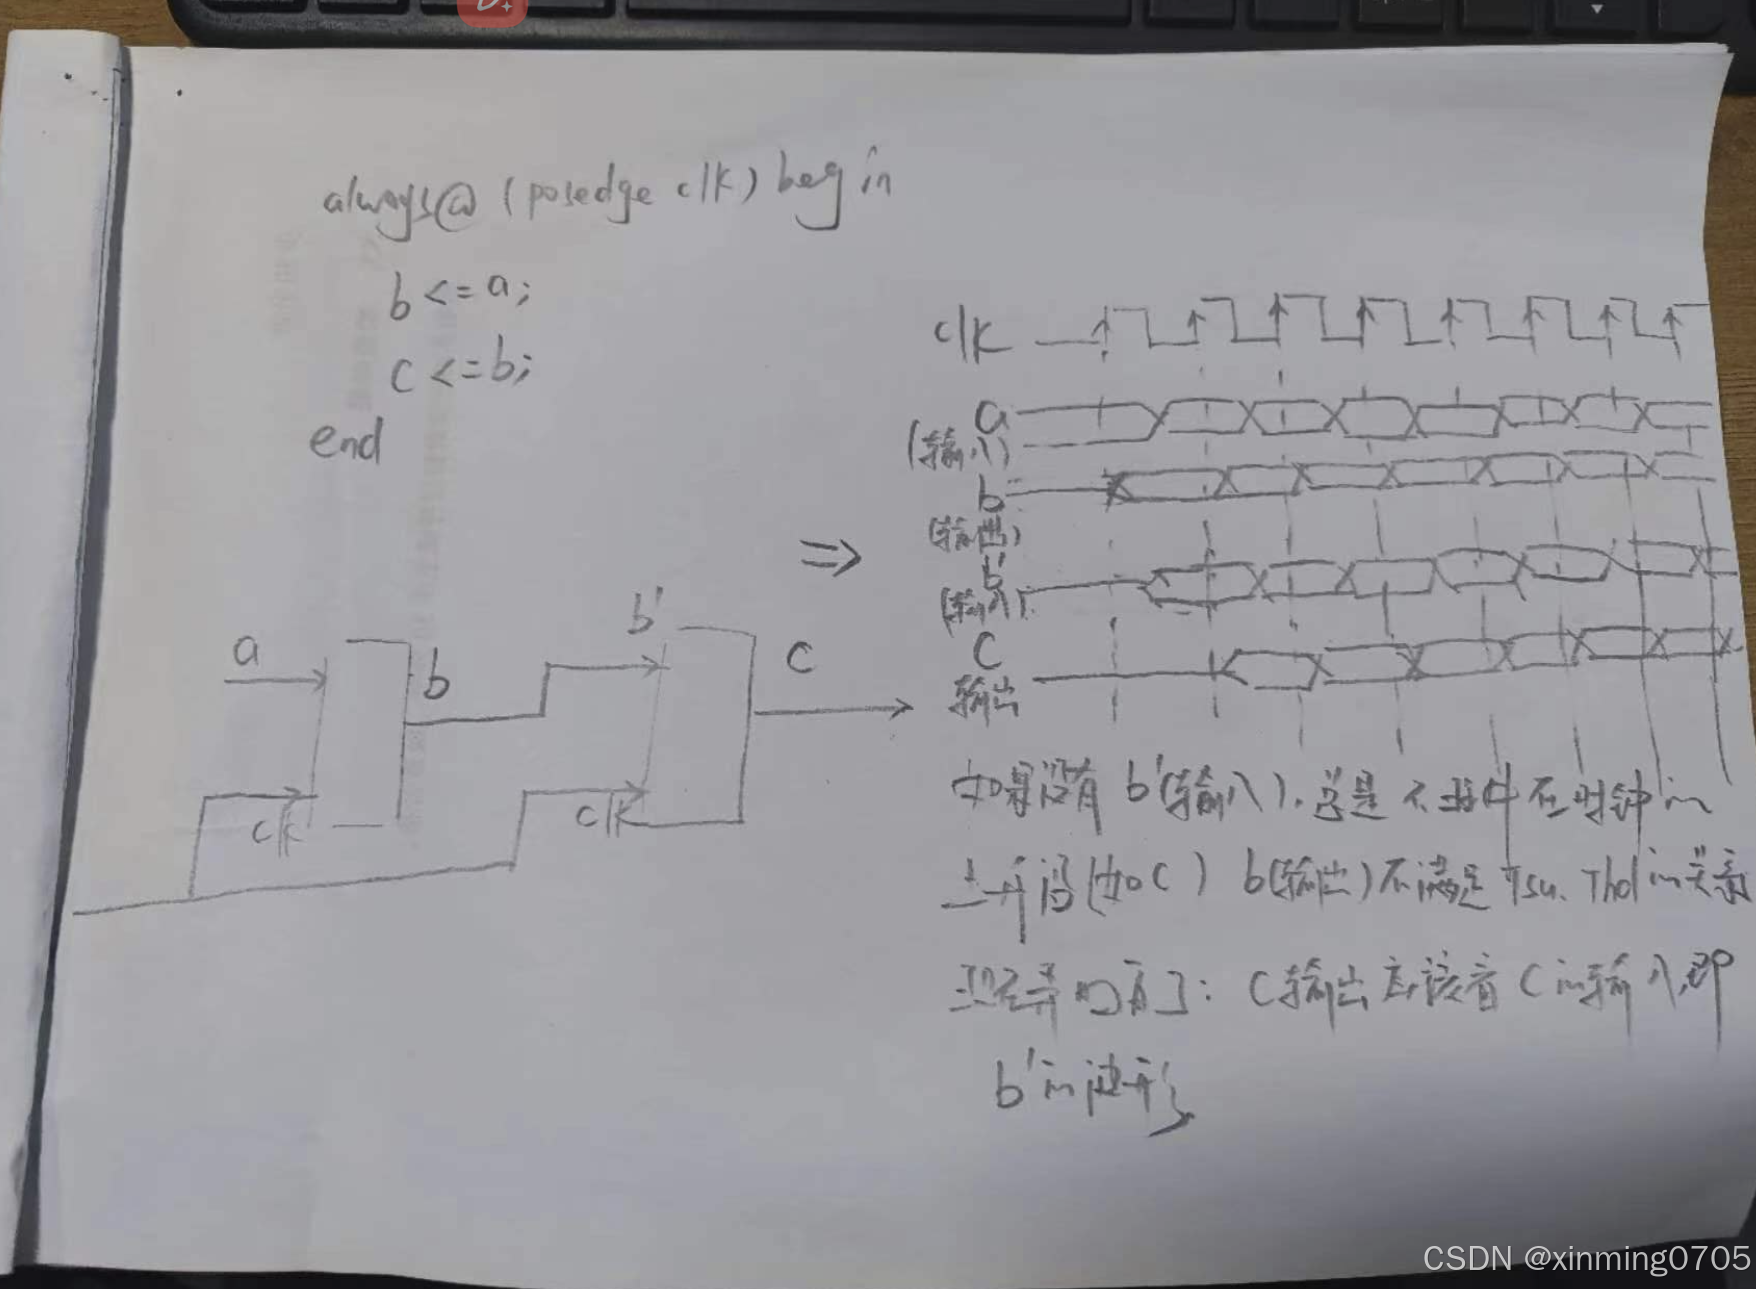 always@(posedge clk) begin
b <= a;
c <= b;
end
a
b
clk
b'
c
clk
⇒
clk
a
(输入)
b
(输出)
b'
(输入)
C
输出
如果没有 b'(输入), 总是不 在时钟的
上升沿(如C) b(输出)不满足 Tsu. Thd 的关系
现在弄明白了: C输出应该看C的输入,即
b'的波形
CSDN @xinming0705